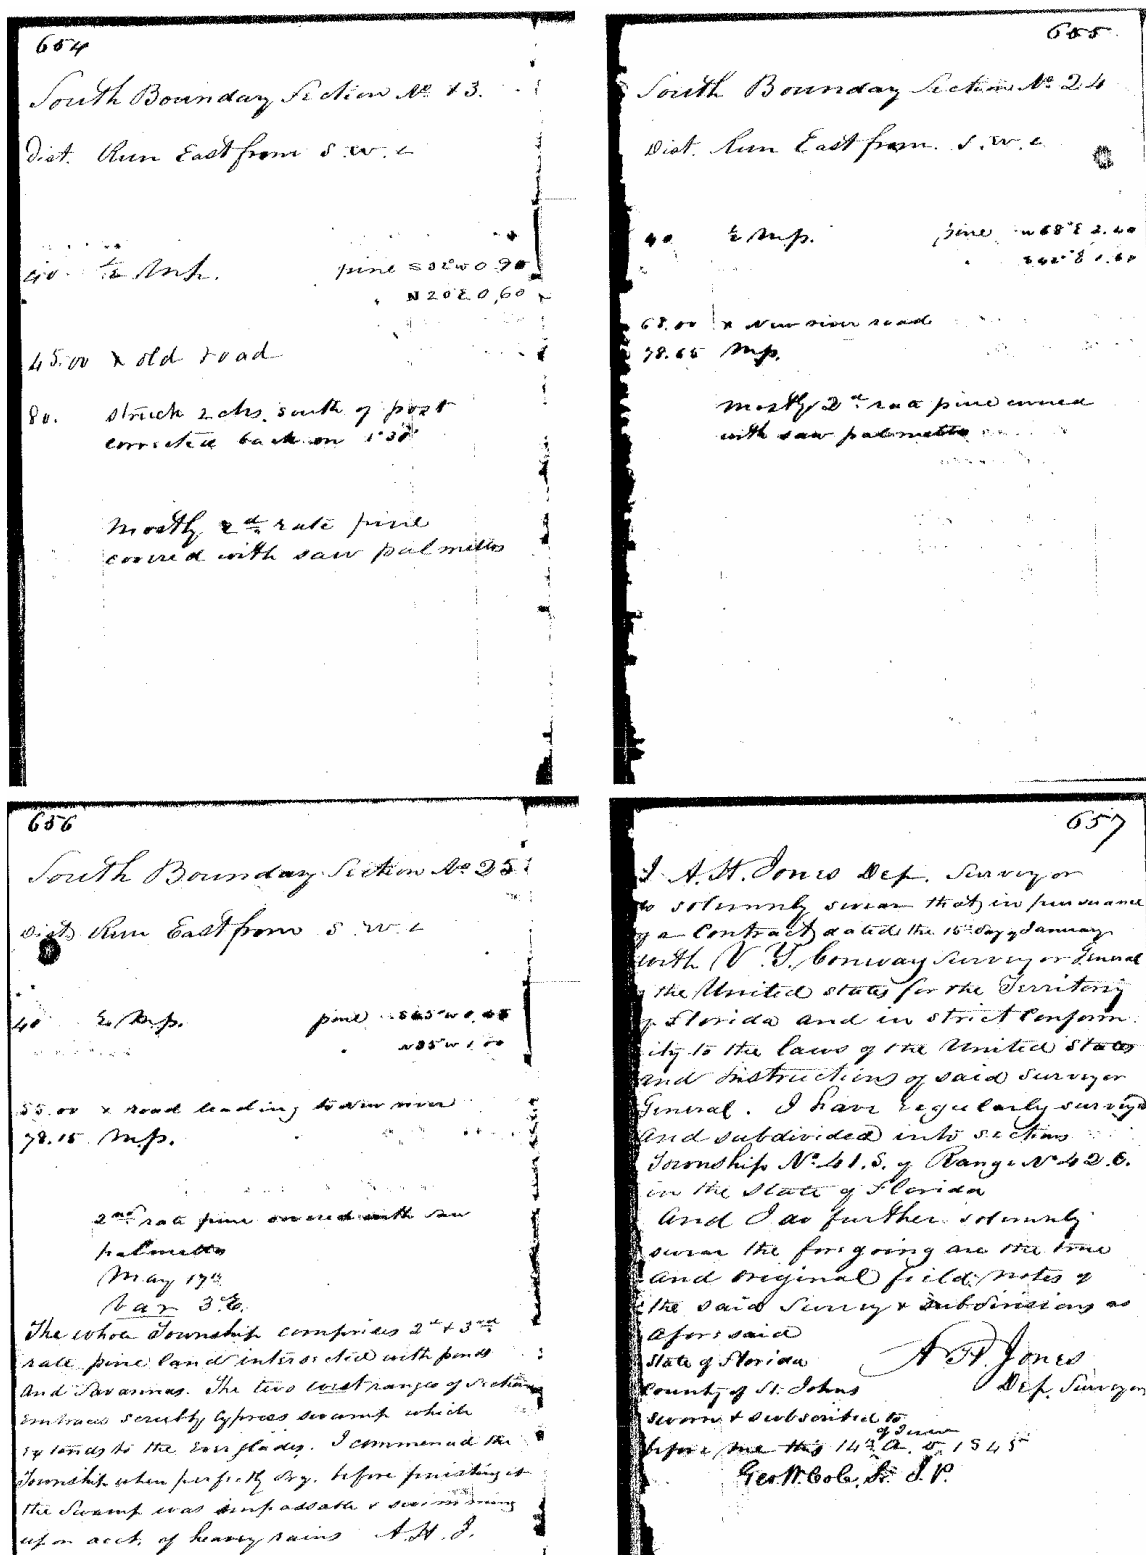 654
South Boundary Section No 13.
Dist. Run East from S. W. c
40 ½ M.p. pine S 52° W 0.90
" N 20 E 0,60
45.00 x old road
80. struck 2 chs. south of post
corrected back on 1°30'
Mostly 2d rate pine
covered with saw palmetto
655
South Boundary Section No 24
Dist. Run East from S. W. c
40 ½ M.p. pine N 68° E 2.40
68.00 x New river road
78.65 M.p.
Mostly 2d rate pine covered
with saw palmetto
656
South Boundary Section No 25
Dist. Run East from S. W. c
40 ½ M.p. pine
" N 85 W 1.00
55.00 x road leading to New river
78.15 M.p.
2nd rate pine covered with saw
palmetto
May 17th
Var 3° E.
The whole Township comprises 2d & 3rd
rate pine land intersected with ponds
and Savannas. The two west ranges of Sections
embraces scrubby Cypress swamp which
extends to the Everglades. I commenced the
Township when perfectly dry. before finishing it
the Swamp was impassable & swimming
upon acct. of heavy rains A. H. J.
657
I A. H. Jones Dep. Surveyor
do solemnly swear that in pursuance
of a Contract dated the 15th day of January
with V. Y. Conway Surveyor General
of the United States for the Territory
of Florida and in strict Conform
ity to the laws of the United States
and Instructions of said Surveyor
General. I have regularly surveyed
and subdivided into sections
Township No 41. S. of Range No 42 E.
in the State of Florida
And I do further solemnly
swear the foregoing are the true
and original field notes of
the said Survey & subdivisions as
aforesaid
State of Florida A H. Jones
County of St. Johns Dep. Surveyor
Sworn & subscribed to
before me this 14th of June A. D. 1845
Geo W. Cole, Sr. J. P.